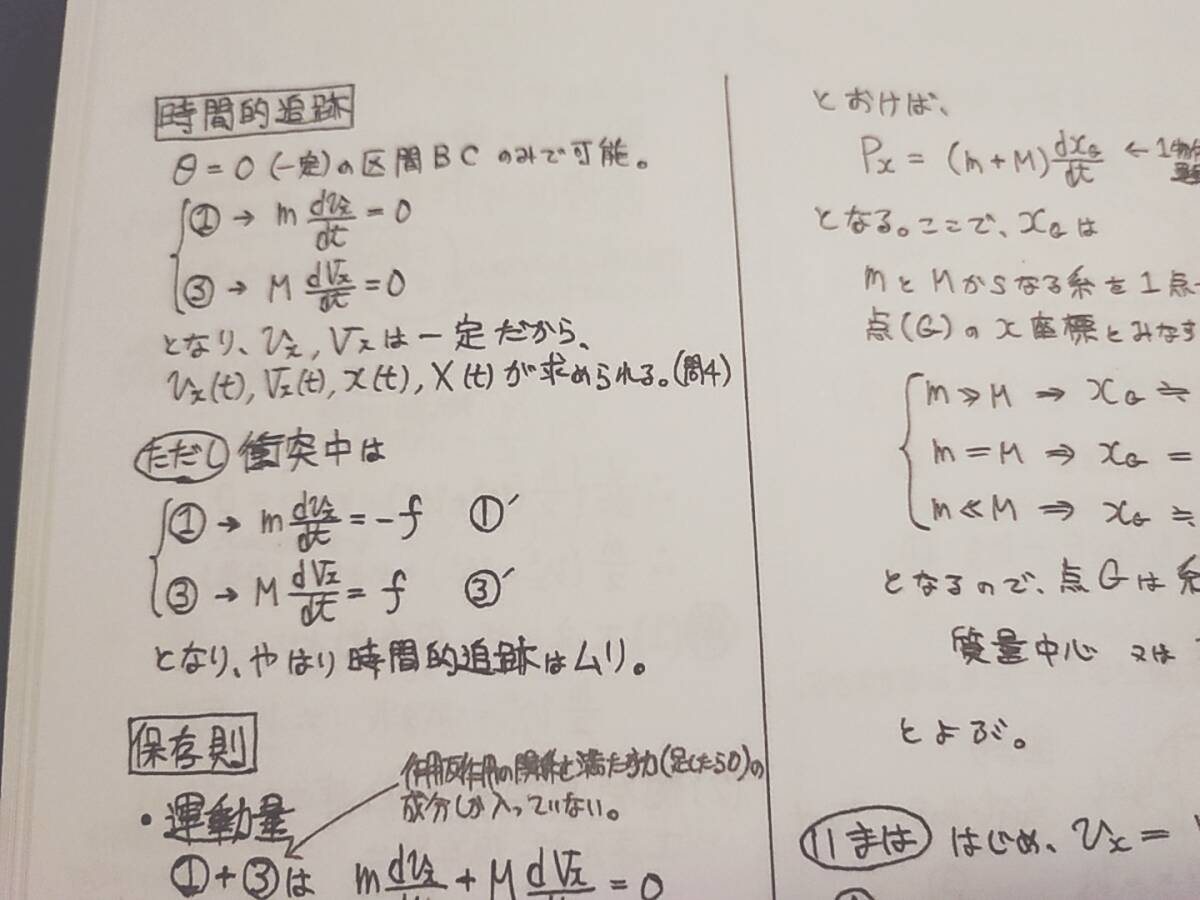 時間的追跡
θ = 0 (一定) の区間BCのみで可能。
① → m dvx/dt = 0
③ → M dVx/dt = 0
となり、vx, Vxは一定だから、
vx(t), Vx(t), x(t), X(t) が求められる。(問4)
ただし 衝突中は
① → m dvx/dt = -f ①'
③ → M dVx/dt = f ③'
となり、やはり時間的追跡はムリ。
保存則
作用反作用の関係を満たす力(足したら0)の
成分しか入っていない。
・運動量
①+③は m dvx/ + M dVx/ = 0
とおけば、
Px = (m+M) dxG/dt ← 1
となる。ここで、xGは
mとMからなる系を1点
点(G)のx座標とみなす
m≫M ⇒ xG ≒
m=M ⇒ xG =
m≪M ⇒ xG ≒
となるので、点Gは
質量中心 又は
とよぶ。
いまは はじめ、vx =